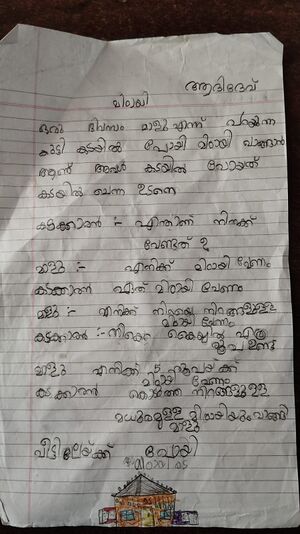 ആദിദേവ്
മിഠായി
ഒരു ദിവസം മാളു എന്ന് പറയുന്ന
കുട്ടി കടയിൽ പ്പോയി മിഠായി വാങ്ങാൻ
ആണ് അവൾ കടയിൽ പോയത്
കടയിൽ ചെന്ന ഉടനെ
കടക്കാരൻ :- എന്താണ് നിനക്ക്
വേണ്ടത് ?
മാളു :- എനിക്ക് മിഠായി വേണം
കടക്കാരൻ ഏത് മിഠായി വേണം
മാളു :- എനിക്ക് നിറയെ നിറങ്ങളുള്ള
മിഠായി വേണം
കടക്കാരൻ :- നിന്റെ കൈയ്യിൽ എത്ര
രൂപ ഉണ്ട്
മാളു എനിക്ക് 5 രൂപയ്ക്ക്
മിഠായി വേണം
കടക്കാരൻ കൊടുത്ത നിറങ്ങളുള്ള
മധുരമുള്ള മിഠായിയും വാങ്ങി
മാളു
വീട്ടിലേയ്ക്ക് പോയി